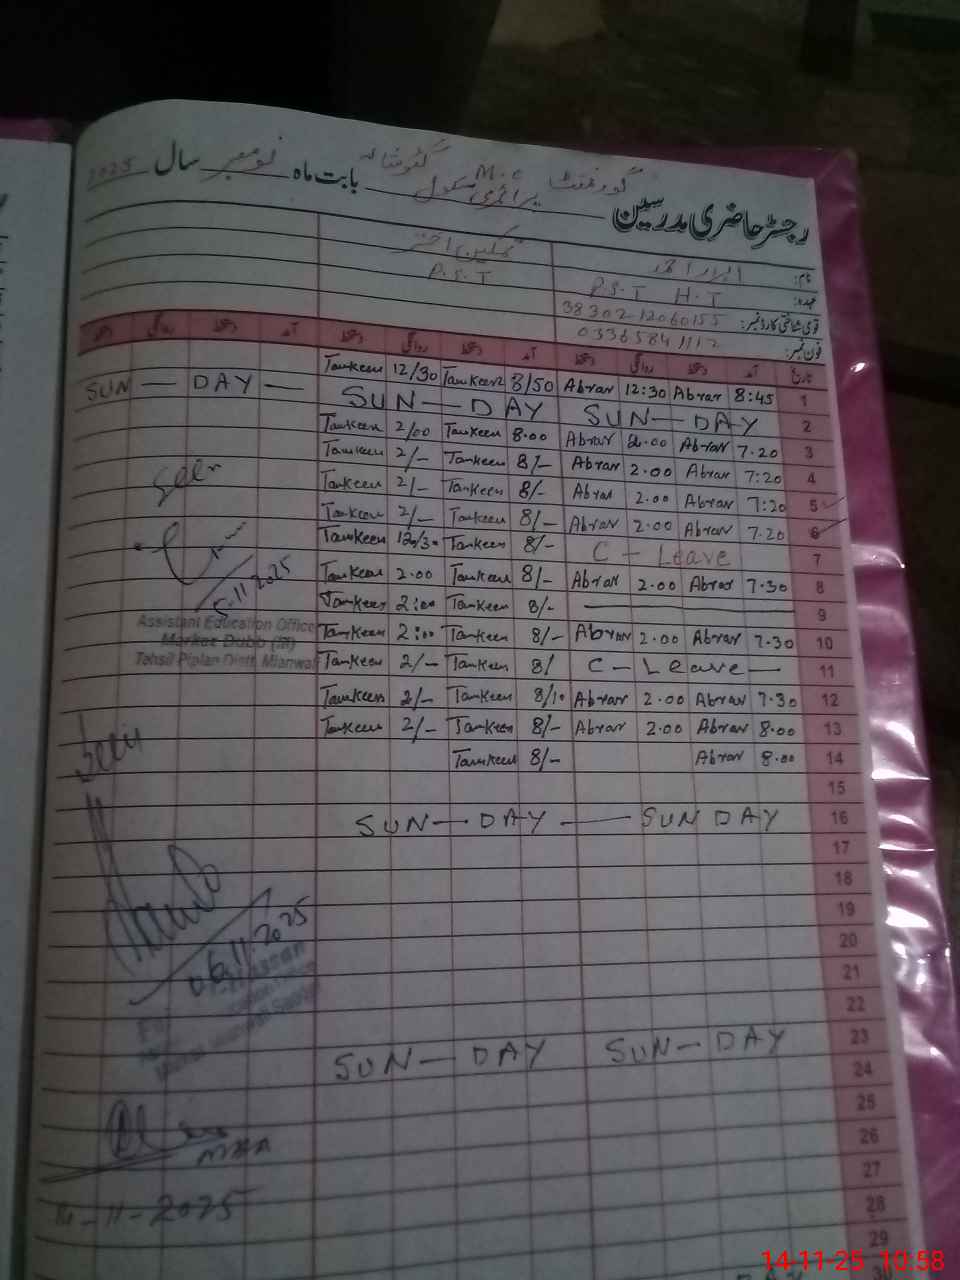 گورنمنٹ M.C پرائمری سکول
رجسٹر حاضری مدرسین بابت ماہ نومبر سال 2025
نام: ابرار احمد تمکین اختر
عہدہ: P.S.T H.T P.S.T
قومی شناختی کارڈ نمبر: 38302-12060155
فون نمبر: 03365841112
تاریخ آمد دستخط روانگی دستخط آمد دستخط روانگی دستخط آمد دستخط روانگی دستخط
Tamkeen 12/30 Tamkeen 8/50 Abrar 12:30 Abrar 8:45 1
SUN — DAY — SUN — DAY SUN — DAY 2
Tamkeen 2/00 Tamkeen 8.00 Abrar 2.00 Abrar 7.20 3
Tamkeen 2/- Tamkeen 8/- Abrar 2.00 Abrar 7:20 4
Tamkeen 2/- Tamkeen 8/- Abrar 2.00 Abrar 7:20 5
Tamkeen 2/- Tamkeen 8/- Abrar 2.00 Abrar 7.20 6
Tamkeen 12/30 Tamkeen 8/- C - Leave 7
Tamkeen 2.00 Tamkeen 8/- Abrar 2.00 Abrar 7.30 8
Tamkeen 2:00 Tamkeen 8/- 9
Tamkeen 2:00 Tamkeen 8/- Abrar 2.00 Abrar 7.30 10
Tamkeen 2/- Tamkeen 8/ C - Leave — 11
Tamkeen 2/- Tamkeen 8/10 Abrar 2.00 Abrar 7.30 12
Tamkeen 2/- Tamkeen 8/- Abrar 2.00 Abrar 8.00 13
Tamkeen 8/- Abrar 8.00 14
15
SUN — DAY — SUN DAY 16
17
18
19
20
21
22
SUN — DAY SUN — DAY 23
24
25
26
27
28
29
5-11-2025
Assistant Education Office
Markaz Dubb (M)
Tehsil Piplan Distt. Mianwali
06.11.2025
14-11-2025
14-11-25 10:58